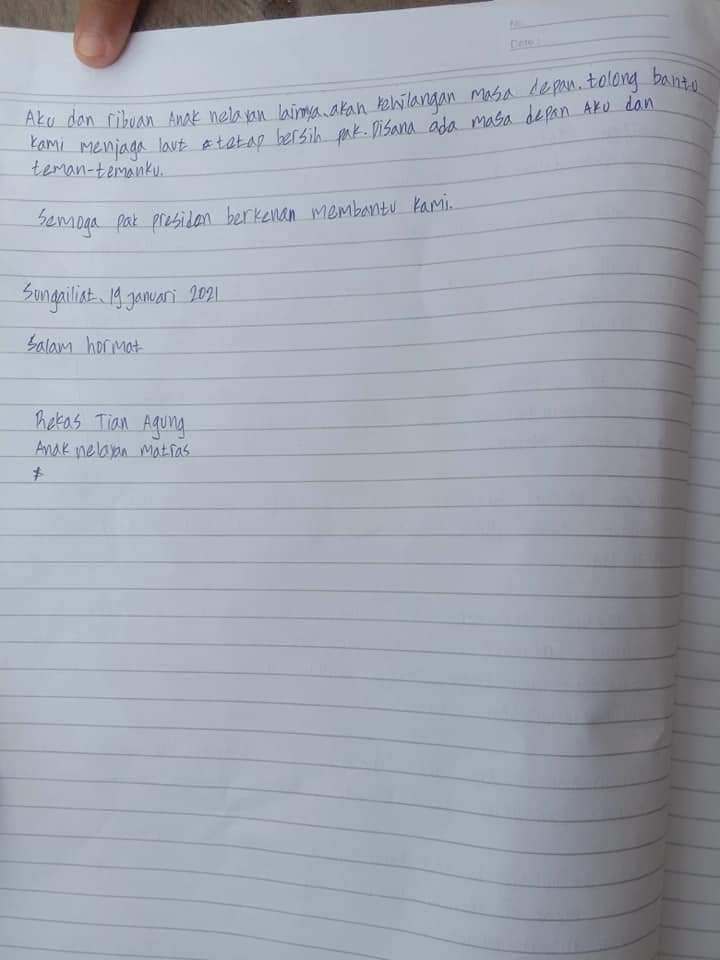 No.
Date :
Aku dan ribuan Anak nelayan lainnya.akan kehilangan masa depan.tolong bantu
kami menjaga laut tetap bersih pak.Disana ada masa depan Aku dan
teman-temanku.
Semoga pak presiden berkenan membantu kami.
Sungailiat, 19 januari 2021
Salam hormat
Rekas Tian Agung
Anak nelayan matras